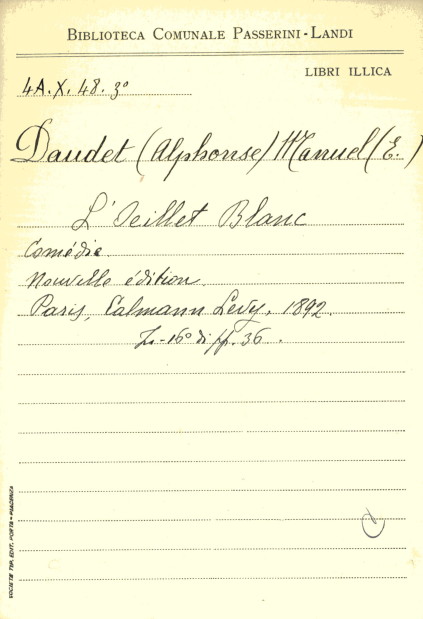 BIBLIOTECA COMUNALE PASSERINI-LANDI
LIBRI ILLICA
4A.X.48.3º
Daudet (Alphonse) Manuel (E.)
L'Oeillet Blanc
Comédie
Nouvelle édition.
Paris, Calmann Levy, 1892.
In-16º di pp. 36.
SOCIETÀ TIP. EDIT. PORTA - PIACENZA